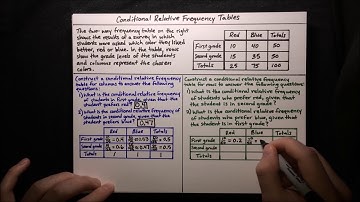 Conditional Relative Frequency Tables
The two way frequency table on the right
shows the results of a survey in which
students were asked which color they liked
better, red or blue. In the table, rows
show the grade levels of the students
and columns represent the chosen
colors.
Red Blue Totals
First grade 10 40 50
Second grade 15 35 50
Totals 25 75 100
Construct a conditional relative frequency
table for columns to answer the following
questions:
1) What is the conditional relative frequency
of students in first grade, given that the
student prefers red? 0.4
2) What is the conditional relative frequency
of students in second grade, given that the
student prefers blue? 0.47
Red Blue Totals
First grade = 0.4 = 0.53 = 0.5
Second grade = 0.6 = 0.47 = 0.5
Totals 1 1 1
Construct a conditional relative frequency
table for rows to answer the following questions:
1) What is the conditional relative frequency
of students who prefer red, given that the
student is in second grade?
2) What is the conditional relative frequency
of students who prefer blue, given that
the student is in first grade?
Red Blue Totals
First grade = 0.2 =
Second grade
Totals